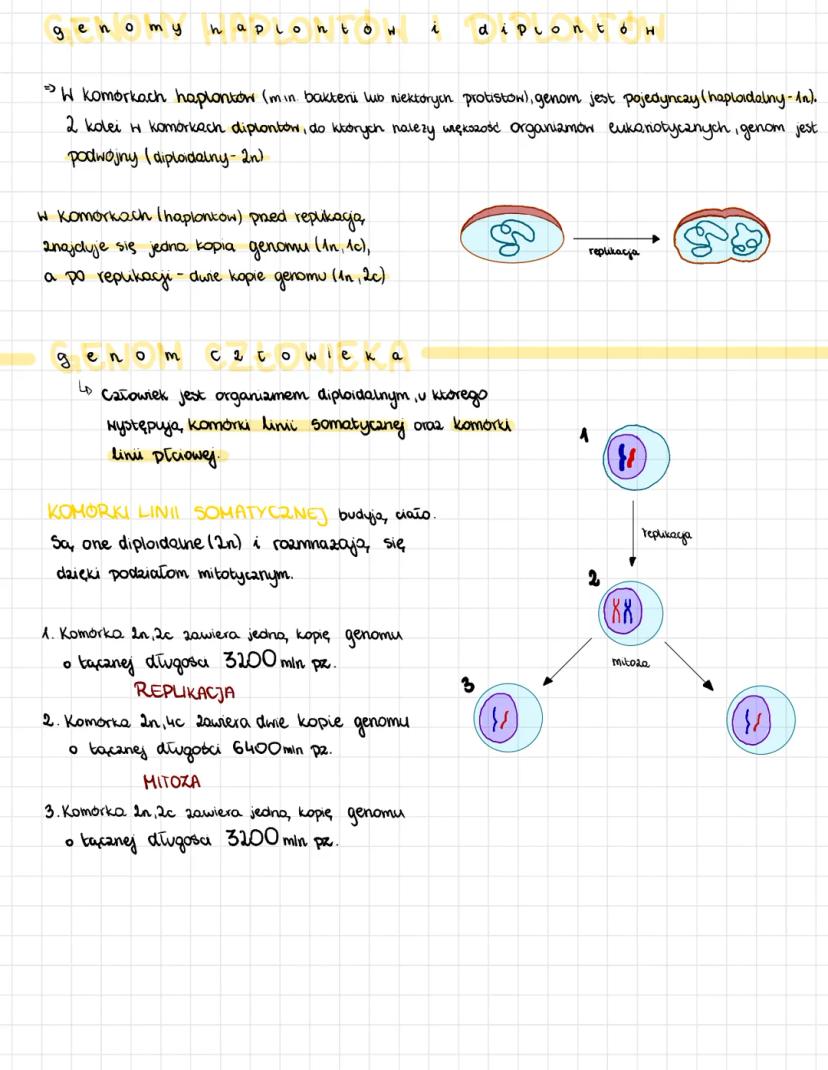 genomy haplontów i diplontów
=> W komórkach haplontów (m.in. bakterii lub niektórych protistów), genom jest pojedynczy (haploidalny - 1n).
Z kolei w komórkach diplontów, do których należy większość organizmów eukariotycznych, genom jest
podwójny (diploidalny - 2n)
W komórkach (haplontów) przed replikacją
znajduje się jedna kopia genomu (1n, 1c),
a po replikacji - dwie kopie genomu (1n, 2c)
replikacja
genom człowieka
↳ Człowiek jest organizmem diploidalnym, u którego
występują komórki linii somatycznej oraz komórki
linii płciowej.
1
replikacja
KOMÓRKI LINII SOMATYCZNEJ budują ciało.
Są one diploidalne (2n) i rozmnażają się
dzięki podziałom mitotycznym.
2
mitoza
3
1. Komórka 2n, 2c zawiera jedną kopię genomu
o łącznej długości 3200 mln pz.
REPLIKACJA
2. Komórka 2n, 4c zawiera dwie kopie genomu
o łącznej długości 6400 mln pz.
MITOZA
3. Komórka 2n, 2c zawiera jedną kopię genomu
o łącznej długości 3200 mln pz.